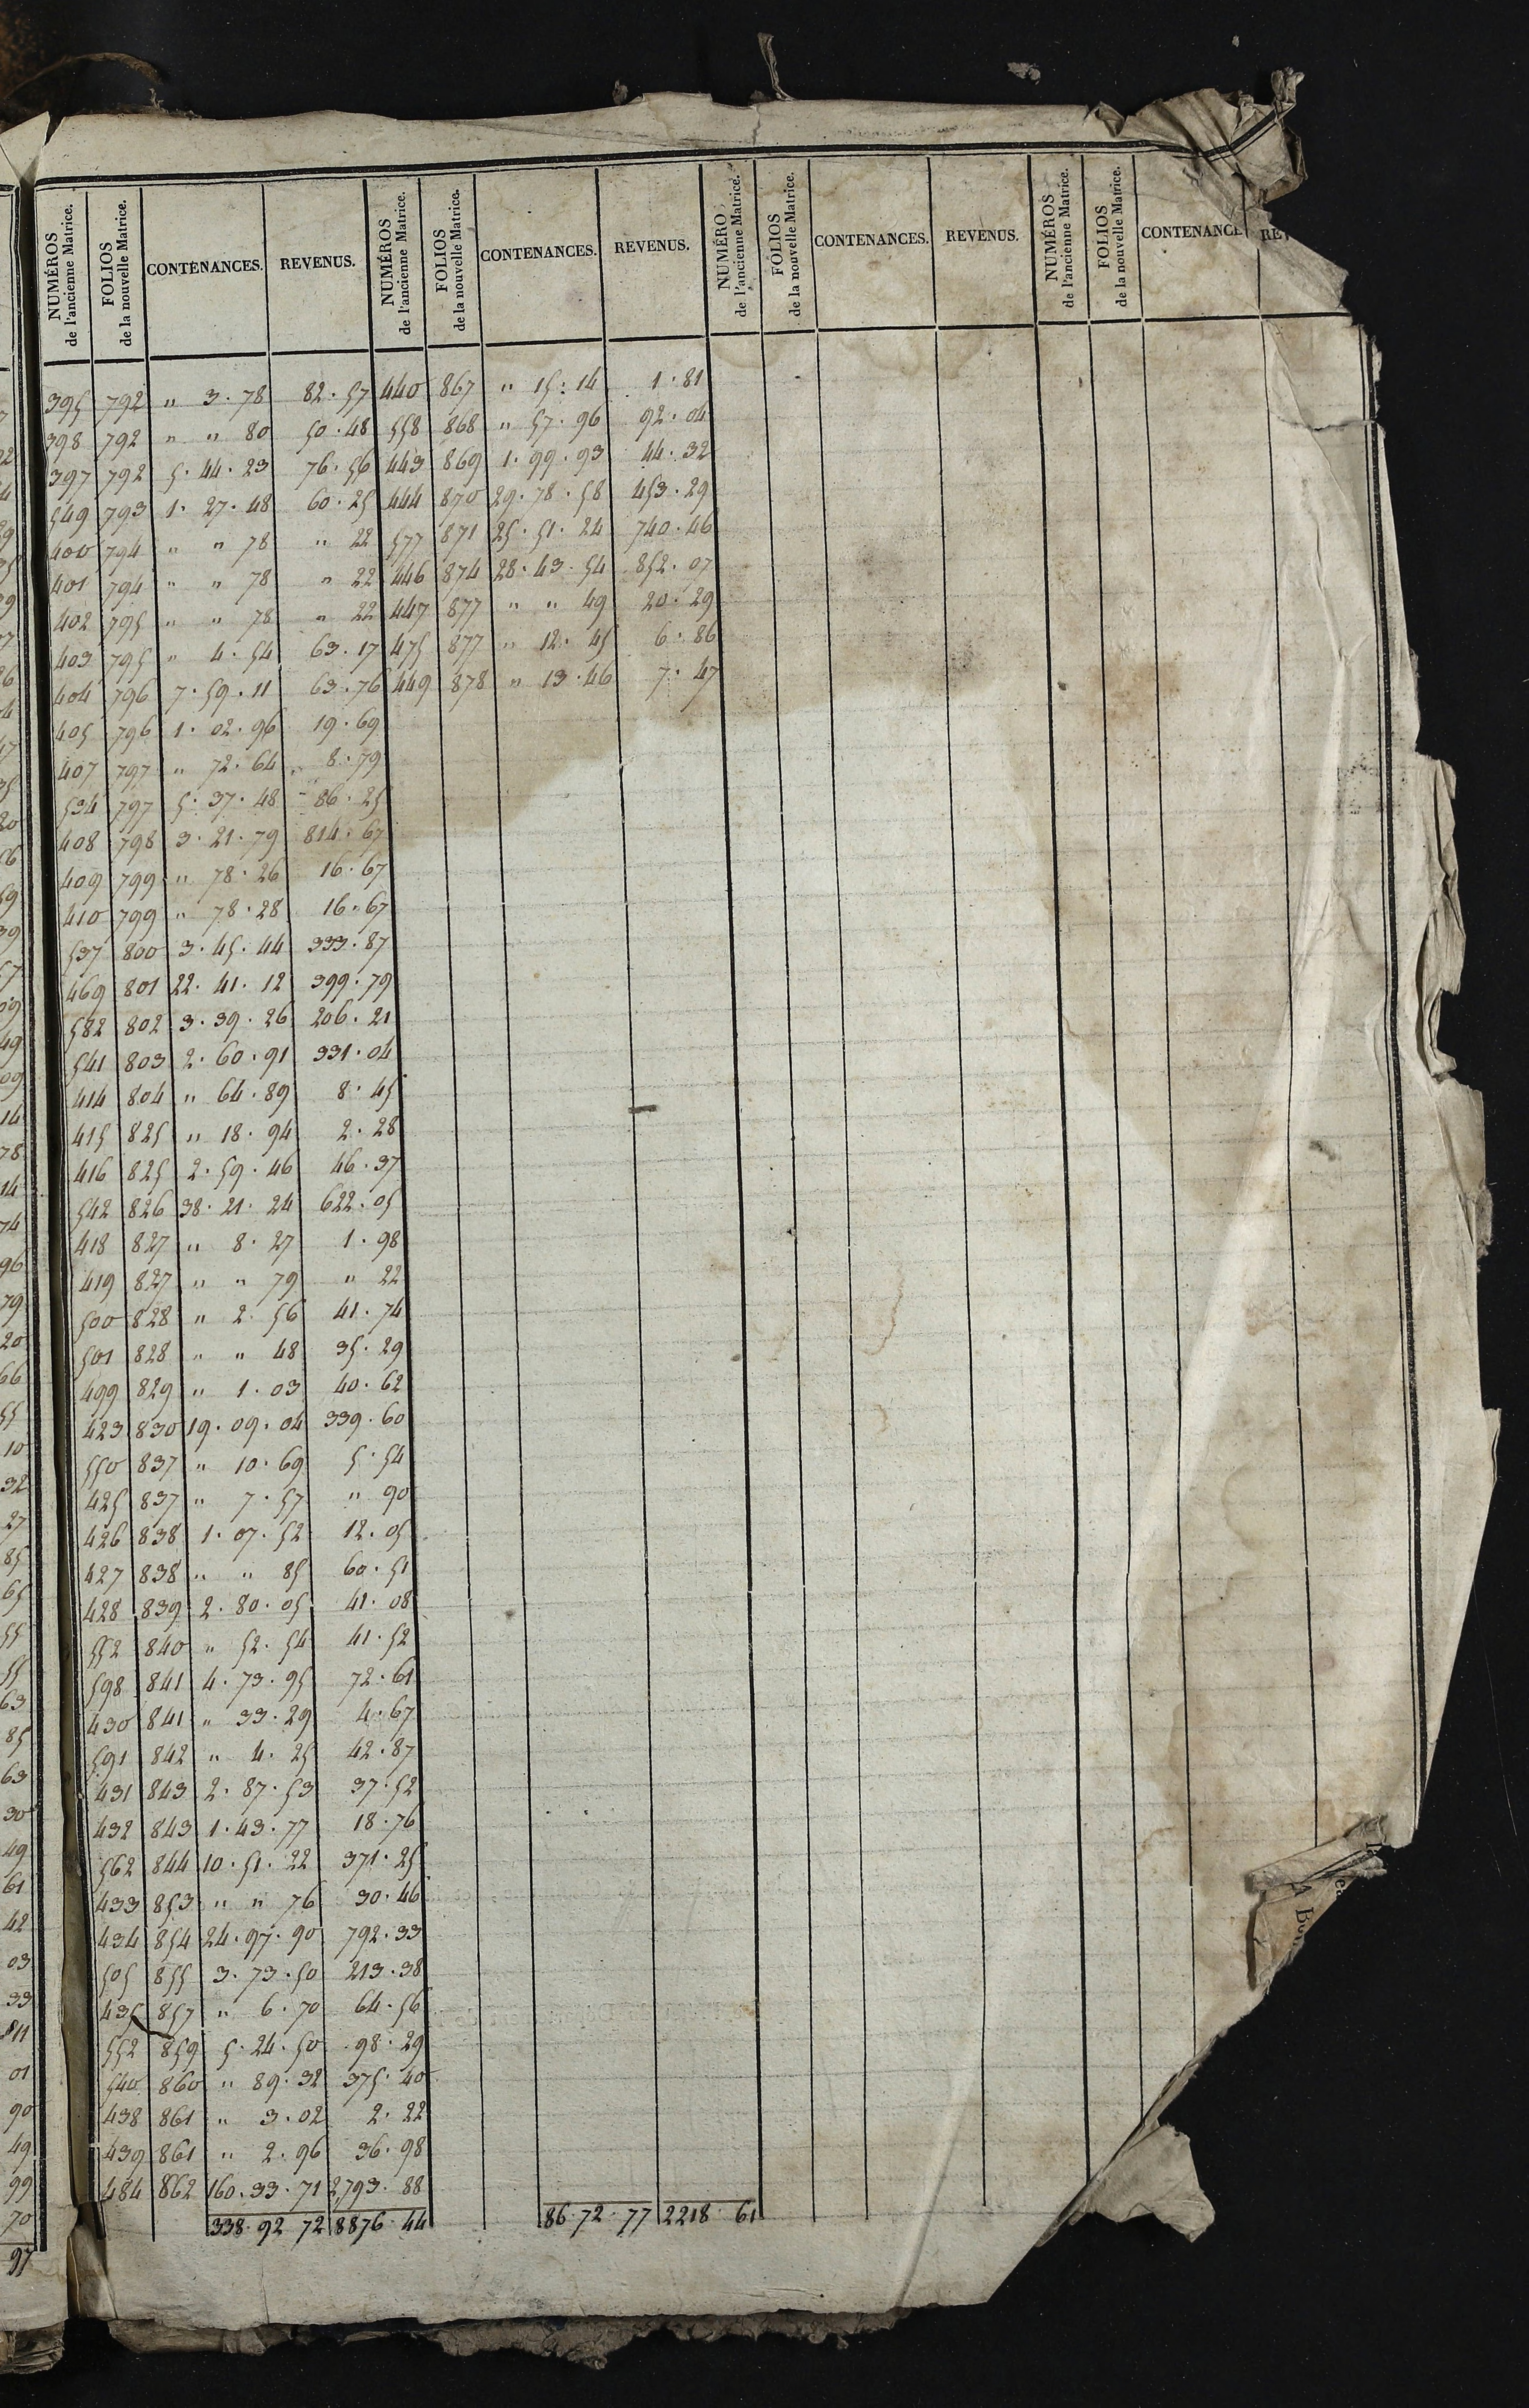 NUMÉROS de l'ancienne Matrice. FOLIOS de la nouvelle Matrice. CONTENANCES. REVENUS. NUMÉROS de l'ancienne Matrice. FOLIOS de la nouvelle Matrice. CONTENANCES. REVENUS. NUMÉRO de l'ancienne Matrice. FOLIOS de la nouvelle Matrice. CONTENANCES. REVENUS. NUMÉROS de l'ancienne Matrice. FOLIOS de la nouvelle Matrice. CONTENANCE
395 792 " 3.78 82.57 440 867 " 15.14 1.81
398 792 " " 80 50.48 558 868 " 57.96 92.04
397 792 5.44.23 76.56 443 869 1.99.93 44.32
549 793 1.27.48 60.25 444 870 29.78.58 453.29
400 794 " " 78 " 22 577 871 25.51.24 740.46
401 794 " " 78 " 22 446 874 28.43.54 852.07
402 795 " " 78 " 22 447 877 " " 49 20.29
403 795 " 4.54 63.17 475 877 " 12.45 6.86
404 796 7.59.11 63.76 449 878 " 13.46 7.47
405 796 1.02.96 19.69
407 797 " 72.64 8.79
534 797 5.37.48 86.25
408 798 3.21.79 814.67
409 799 " 78.26 16.67
410 799 " 78.28 16.67
537 800 3.45.44 333.87
469 801 22.41.12 399.79
582 802 3.39.26 206.21
541 803 2.60.91 331.04
414 804 " 64.89 8.45
415 825 " 18.94 2.28
416 825 2.59.46 46.37
542 826 38.21.24 622.05
418 827 " 8.27 1.98
419 827 " " 79 " 22
500 828 " 2.56 41.74
501 828 " " 48 35.29
499 829 " 1.03 40.62
423 830 19.09.04 339.60
550 837 " 10.69 5.54
425 837 " 7.57 " 90
426 838 1.07.52 12.05
427 838 " " 85 60.51
428 839 2.80.05 41.08
552 840 " 52.54 41.52
598 841 4.73.95 72.61
430 841 " 33.29 4.67
591 842 " 4.25 42.87
431 843 2.87.53 37.52
432 843 1.43.77 18.76
562 844 10.51.22 371.25
433 853 " " 76 30.46
434 854 24.97.90 792.33
505 855 3.73.50 213.38
435 857 " 6.70 64.56
552 859 5.24.50 98.29
540 860 " 89.32 375.40
438 861 " 3.02 2.22
439 861 " 2.96 36.98
484 862 160.33.71 2,793.88
338.92 72 8876.44 86.72.77 2218.61